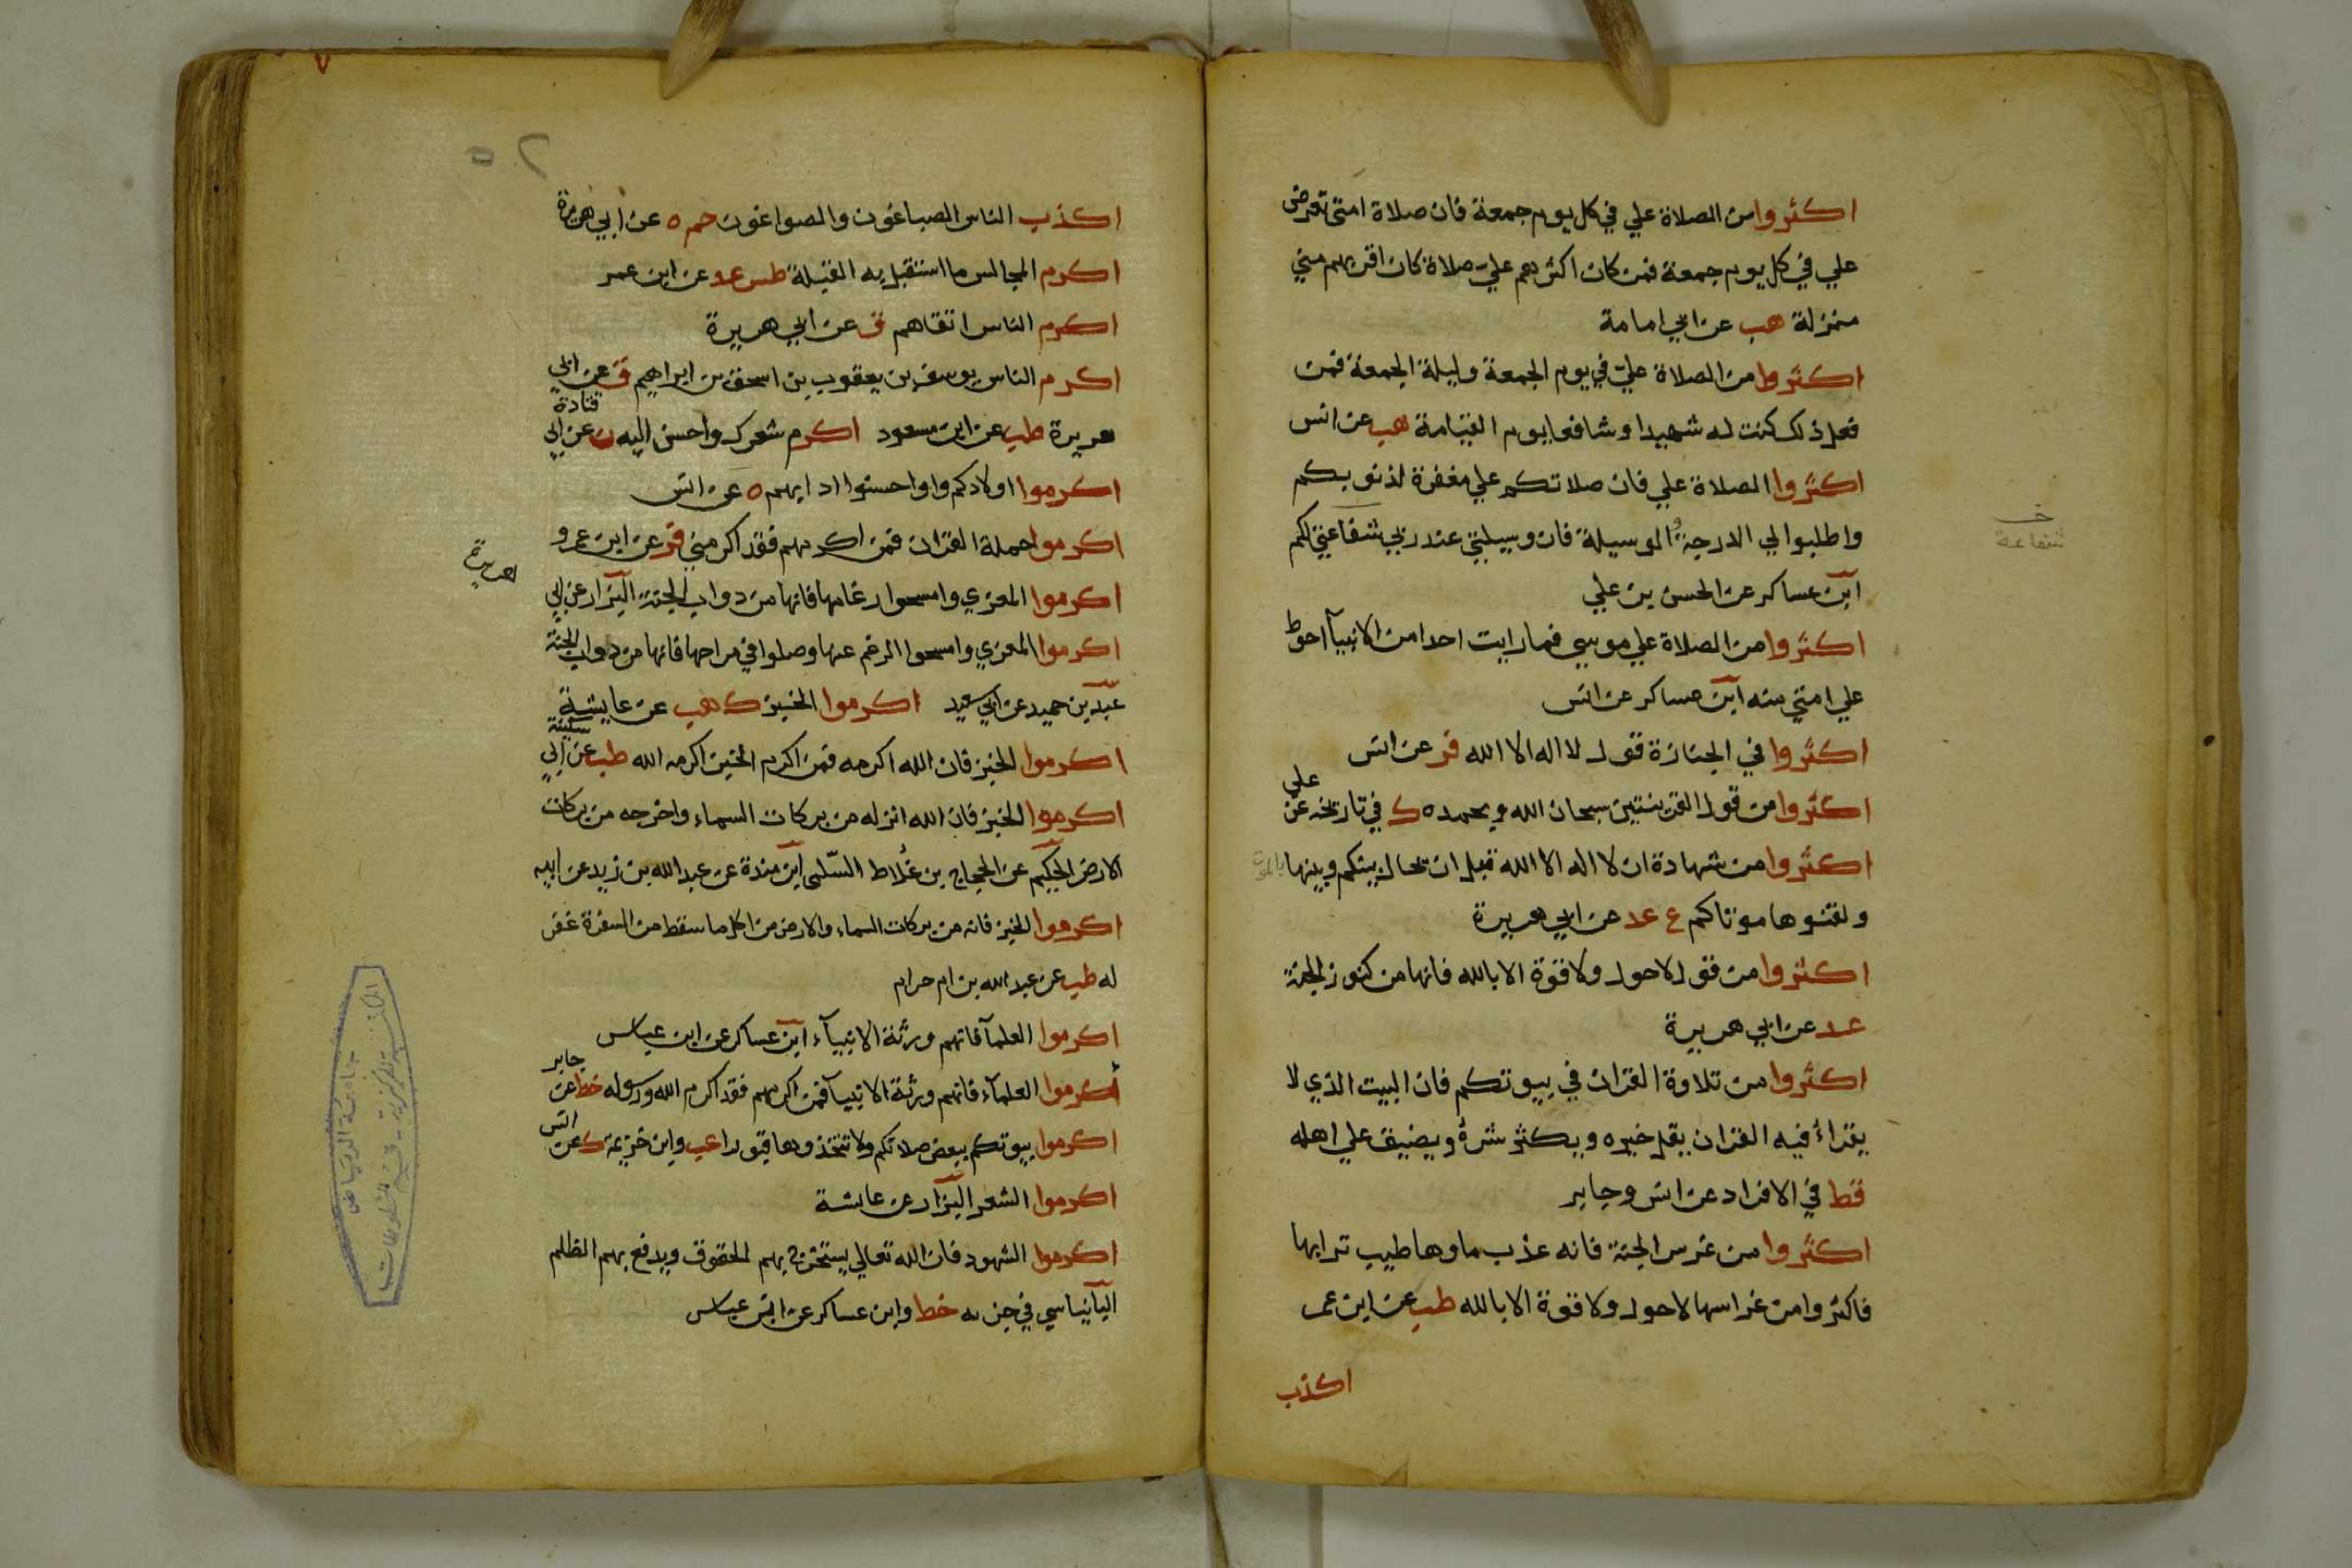 اكثروا من الصلاة علي في كل يوم جمعة فان صلاة امتي تعرض
علي في كل يوم جمعة فمن كان اكثرهم علي صلاة كان اقربهم مني
منزلة هب عن ابي امامة
اكثروا من الصلاة علي في يوم الجمعة وليلة الجمعة فمن
فعل ذلك كنت له شهيدا وشافعا يوم القيامة هب عن انس
اكثروا الصلاة علي فان صلاتكم علي مغفرة لذنوبكم
واطلبوا لي الدرجة والوسيلة فان وسيلتي عند ربي شفاعتي لكم
خـ
شفاعة
ابن عساكر عن الحسن بن علي
اكثروا من الصلاة علي موسي فما رايت احدا من الانبيآ احوط
علي امتي منه ابن عساكر عن انس
اكثروا في الجنازة قول لا اله الا الله فر عن انس
اكثروا من قول القرينتين سبحان الله وبحمده ك في تاريخه عن علي
اكثروا من شهادة ان لا اله الا الله قبل ان يحال بينكم وبينها
ولقنوها موتاكم ع عد عن ابي هريرة
اكثروا من قول لا حول ولا قوة الا بالله فانها من كنوز الجنة
عد عن ابي هريرة
اكثروا من تلاوة القران في بيوتكم فان البيت الذي لا
يقراء فيه القران يقل خيره ويكثر شره ويضيق علي اهله
قط في الافراد عن انس وجابر
اكثروا من غرس الجنة فانه عذب ماوها طيب ترابها
فاكثروا من غراسها لا حول ولا قوة الا بالله طب عن ابن عمر
اكذب
٧
٥٢
اكذب الناس الصباغون والصواغون حم ه عن ابي هريرة
اكرم المجالس ما استقبل به القبلة طس عد عن ابن عمر
اكرم الناس اتقاهم ق عن ابي هريرة
اكرم الناس يوسف بن يعقوب بن اسحق بن ابراهيم ق عن ابي
هريرة طب عن ابن مسعود اكرم شعرك واحسن اليه ن عن ابي قتادة
اكرموا اولادكم واحسنوا ادابهم ه عن انس
اكرموا حملة القران فمن اكرمهم فقد اكرمني فر عن ابن عمرو
اكرموا المعزي وامسحوا رغامها فانها من دواب الجنة البزار عن ابي
هريرة
اكرموا المعزي وامسحوا الرغم عنها وصلوا في مراحها فانها من دواب الجنة
عبد بن حميد عن ابي سعيد اكرموا الخبز ك هب عن عايشة
اكرموا الخبز فان الله اكرمه فمن اكرم الخبز اكرمه الله طب عن ابي سكينة
اكرموا الخبز فان الله انزله من بركات السماء واخرجه من بركات
الارض الحكيم عن الحجاج بن علاط السلمي ابن مندة عن عبد الله بن زيد عن ابيه
اكرموا الخبز فانه من بركات السماء والارض من اكل ما سقط من السفرة غفر
له طب عن عبد الله بن ام حرام
اكرموا العلمآ فانهم ورثة الانبيآء ابن عساكر عن ابن عباس
اكرموا العلمآء فانهم ورثة الانبيآ فمن اكرمهم فقد اكرم الله ورسوله خط عن جابر
اكرموا بيوتكم ببعض صلاتكم ولا تتخذوها قبورا عب وابن خزيمة ك عن انس
اكرموا الشعر البزار عن عايشة
اكرموا الشهود فان الله تعالي يستخرج بهم الحقوق ويدفع بهم الظلم
البانياسي في جزءه خط وابن عساكر عن ابن عباس
جامعة الرياض
قسم المخطوطات